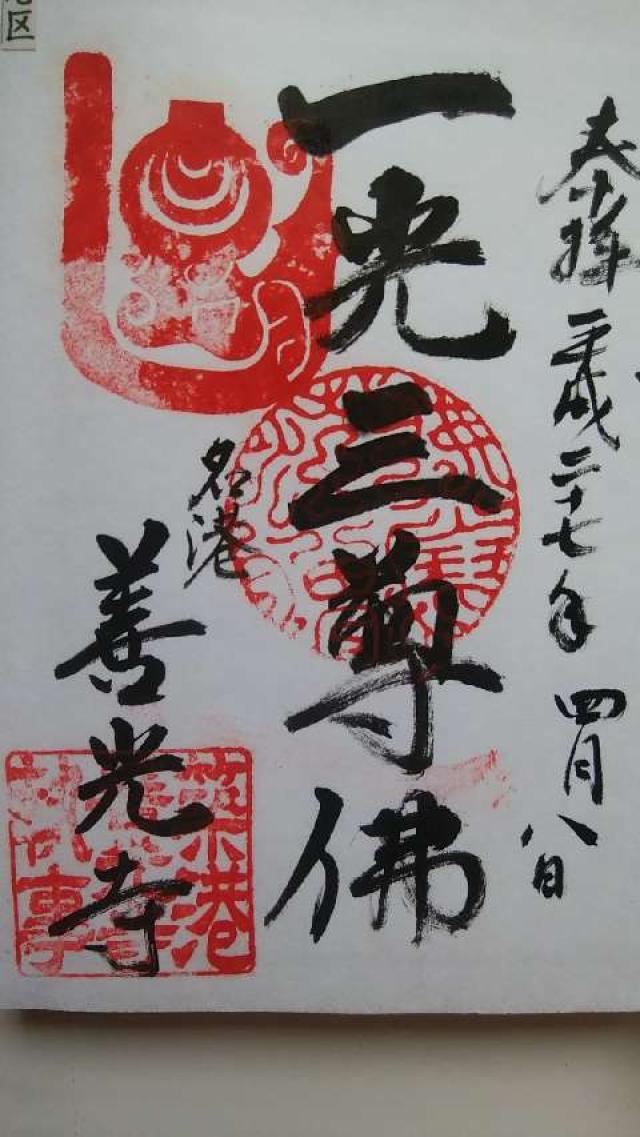 奉拝 平成二十七年 四月八日
一光三尊佛
名港
善光寺
区